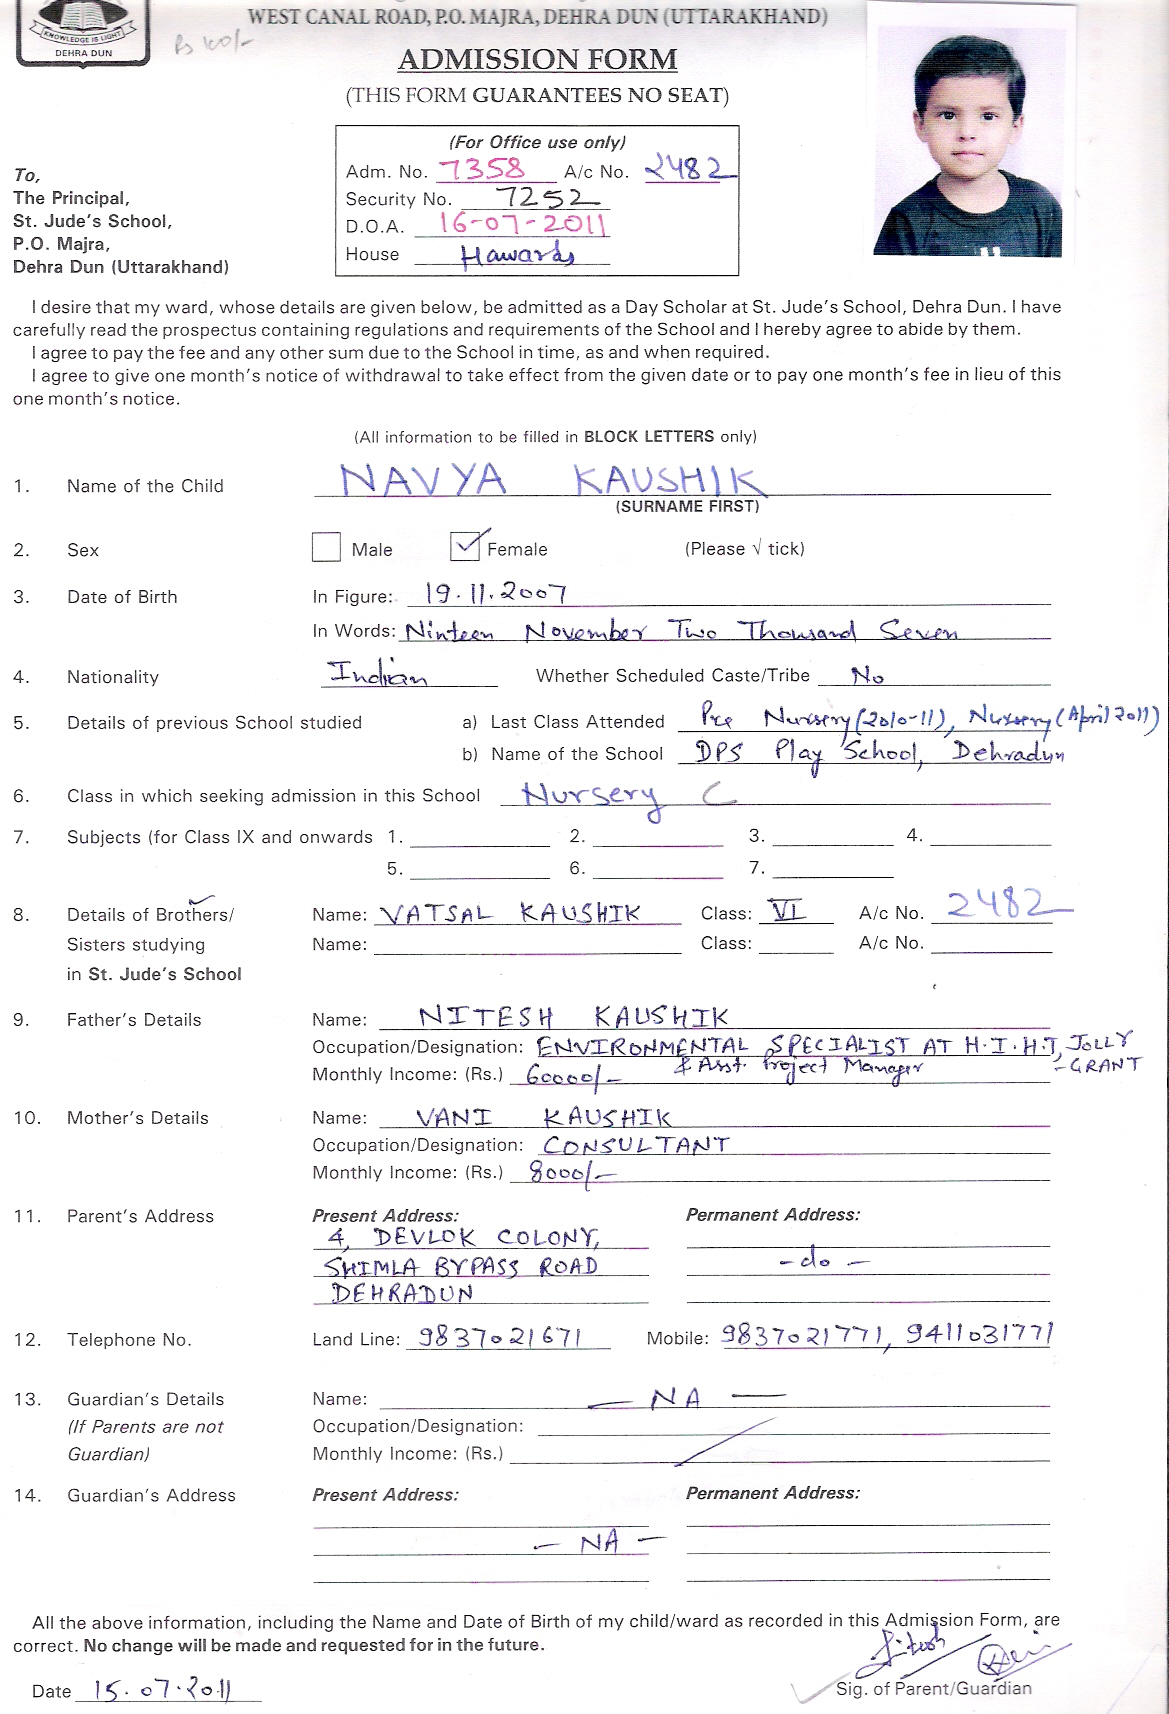 KNOWLEDGE IS LIGHT
DEHRA DUN
Rs 100/-
WEST CANAL ROAD, P.O. MAJRA, DEHRA DUN (UTTARAKHAND)
ADMISSION FORM
(THIS FORM GUARANTEES NO SEAT)
(For Office use only)
Adm. No. 7358 A/c No. 2482
Security No. 7252
D.O.A. 16-07-2011
House Hawards
To,
The Principal,
St. Jude's School,
P.O. Majra,
Dehra Dun (Uttarakhand)
I desire that my ward, whose details are given below, be admitted as a Day Scholar at St. Jude's School, Dehra Dun. I have
carefully read the prospectus containing regulations and requirements of the School and I hereby agree to abide by them.
I agree to pay the fee and any other sum due to the School in time, as and when required.
I agree to give one month's notice of withdrawal to take effect from the given date or to pay one month's fee in lieu of this
one month's notice.
(All information to be filled in BLOCK LETTERS only)
1. Name of the Child NAVYA KAUSHIK
(SURNAME FIRST)
2. Sex Male Female (Please √ tick)
3. Date of Birth In Figure: 19.11.2007
In Words: Ninteen November Two Thousand Seven
4. Nationality Indian Whether Scheduled Caste/Tribe No
5. Details of previous School studied a) Last Class Attended Pre Nursery (2010-11), Nursery (April 2011)
b) Name of the School DPS Play School, Dehradun
6. Class in which seeking admission in this School Nursery C
7. Subjects (for Class IX and onwards 1. 2. 3. 4.
5. 6. 7.
8. Details of Brothers/ Name: VATSAL KAUSHIK Class: VI A/c No. 2482
Sisters studying Name: Class: A/c No.
in St. Jude's School
9. Father's Details Name: NITESH KAUSHIK
Occupation/Designation: ENVIRONMENTAL SPECIALIST AT H.I.H.T, JOLLY
-GRANT
Monthly Income: (Rs.) 60000/- & Asst. Project Manager
10. Mother's Details Name: VANI KAUSHIK
Occupation/Designation: CONSULTANT
Monthly Income: (Rs.) 8000/-
11. Parent's Address Present Address: Permanent Address:
4, DEVLOK COLONY,
SHIMLA BYPASS ROAD -do-
DEHRADUN
12. Telephone No. Land Line: 9837021671 Mobile: 9837021771, 9411031771
13. Guardian's Details Name: - NA -
(If Parents are not Occupation/Designation:
Guardian) Monthly Income: (Rs.)
14. Guardian's Address Present Address: Permanent Address:
- NA -
All the above information, including the Name and Date of Birth of my child/ward as recorded in this Admission Form, are
correct. No change will be made and requested for in the future.
Nitesh
Date 15.07.2011 Sig. of Parent/Guardian